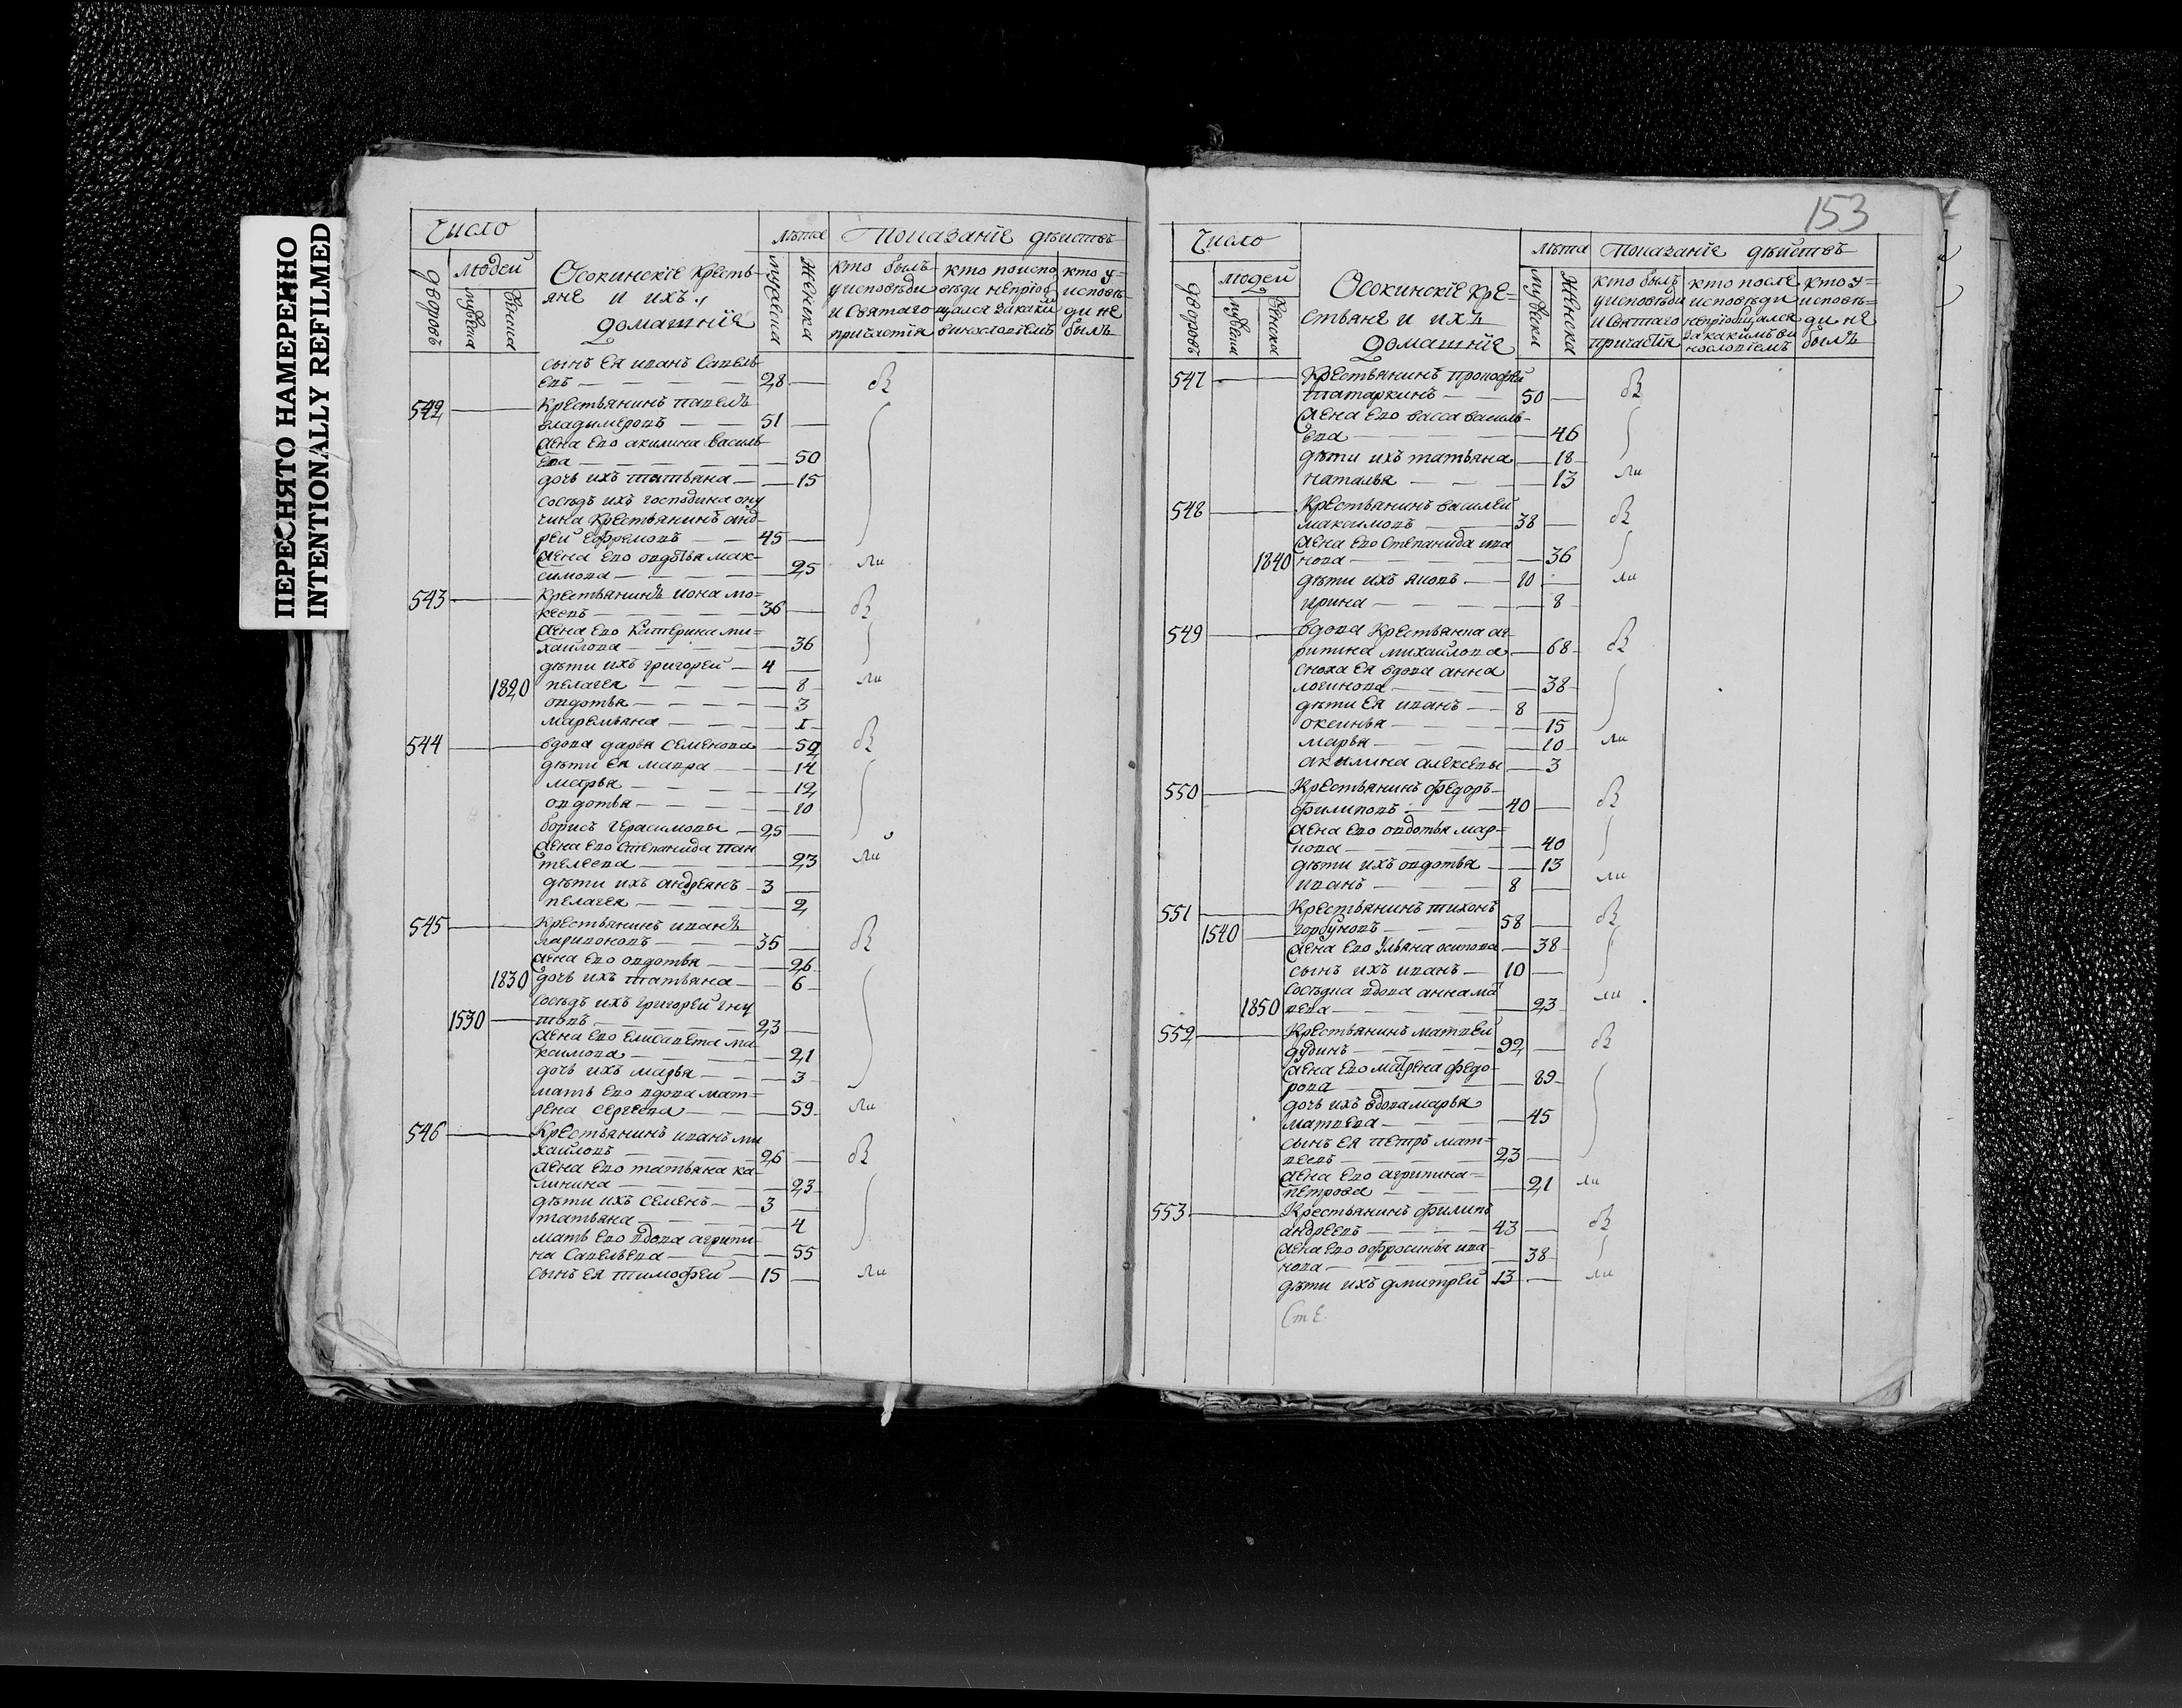 ПЕРЕСНЯТО НАМЕРЕННО
INTENTIONALLY REFILMED
Число
лѣта Показаніе дѣйствъ
дворовъ
людей
мужеска
женска
Осокинскіе кресть-
яне и ихъ
домашніе
мужеска
женска
кто былъ
у исповѣди
и святаго
причастія
кто по испо
вѣди непріоб
щался за каки
винословіемъ
кто у=
исповѣ-
ди не
былъ
сынъ ея иванъ савель
евъ 28
542 крестьянинъ павелъ
владимеровъ 51
жена ево акилина василь-
ева 50
дочь ихъ татьяна 15
сосѣдъ ихъ господина
крестьянинъ анд-
рей ефремовъ 45
жена ево овдотья мак-
симова 25 ли
543 крестьянинъ иона мо-
кеевъ 36
жена ево катерина ми=
хаилова 36
дѣти ихъ григорей 4
1820 пелагея 8 ли
овдотья 3
маремьяна 1
544 вдова дарья семенова 52
дѣти ея мавра 14
марья 12
овдотья 10
борисъ герасимовы 25
жена ево степанида пан
телеева 23 ли
дѣти ихъ андреянъ 3
пелагея 2
545 крестьянинъ иванъ
35
жена ево овдотья 26
1830 дочь ихъ татьяна 6
сосѣдъ ихъ григорей
1530 23
жена ево елисавета ма-
ксимова 21
дочь ихъ марья 3
мать ево вдова мат=
рена сергеева 59 ли
546 крестьянинъ иванъ ми
хаиловъ 26
жена ево татьяна ка-
линина 23
дѣти ихъ семенъ 3
татьяна 4
мать ево вдова агрипи-
на савельева 55
сынъ ея тимофей 15 ли
153
Число
лѣта Показаніе дѣйствъ
дворовъ
людей
мужеска
женска
Осокинскіе кре=
стьяне и ихъ
домашніе
мужеска
женска
кто былъ
у исповѣди
и святаго
причастія
кто после
исповѣди
непріобщался
за какимъ ви
нословіемъ
кто у=
исповѣ=
ди не
былъ
547 крестьянинъ прокофей
татаркинъ 50
жена ево васса василь-
ева 46
дѣти ихъ татьяна 18
наталья 13 ли
548 крестьянинъ василей
максимовъ 38
жена ево степанида ива
1840 нова 36
дѣти ихъ яковъ 10 ли
ирина 8
549 вдова крестьянка аг-
рипина михаилова 68
сноха ея вдова анна
логинова 38
дѣти ея иванъ 8
оксинья 15
марья 10 ли
акилина алексеевы 3
550 крестьянинъ федоръ
филиповъ 40
жена ево овдотья мар=
кова 40
дѣти ихъ овдотья 13
иванъ 8 ли
551 крестьянинъ тихонъ
1540 горбуновъ 58
жена ево ульяна осипова 38
сынъ ихъ иванъ 10
сосѣдка вдова анна мат
1850 веева 23 ли
552 крестьянинъ матвей
дудинъ 92
жена ево матрена федо-
рова 89
дочь ихъ вдова марья
матвева 45
сынъ ея петръ мат=
веевъ 23
жена ево агрипина=
петрова 21 ли
553 крестьянинъ филипъ
андреевъ 43
жена ево офросинья ива-
нова 38
дѣти ихъ дмитрей 13 ли
сте